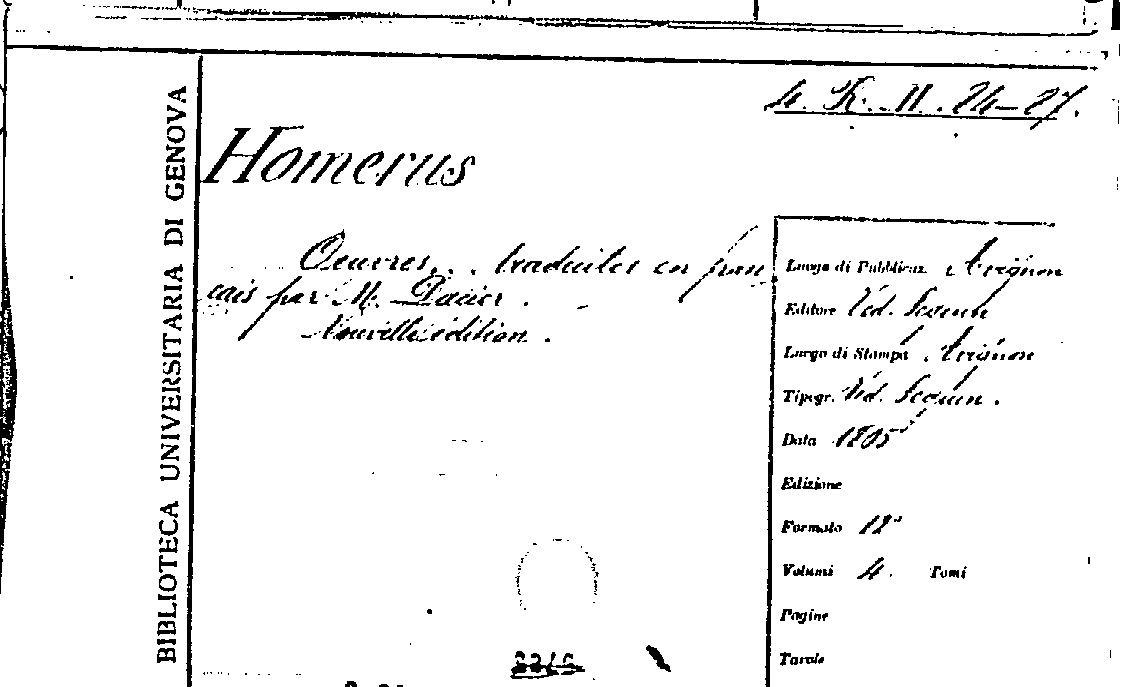 BIBLIOTECA UNIVERSITARIA DI GENOVA
4. K. II. 24-27.
Homerus
Oeuvres... traduites en fran
cais par M. Dacier.
Nouvelle édition.
Luogo di Pubblicaz. Avignon
Editore Vid. Seguin
Luogo di Stampa Avignon
Tipogr. Vid. Seguin.
Data 1805
Edizione
Formato 12°
Volumi 4. Tomi
Pagine
Tavole